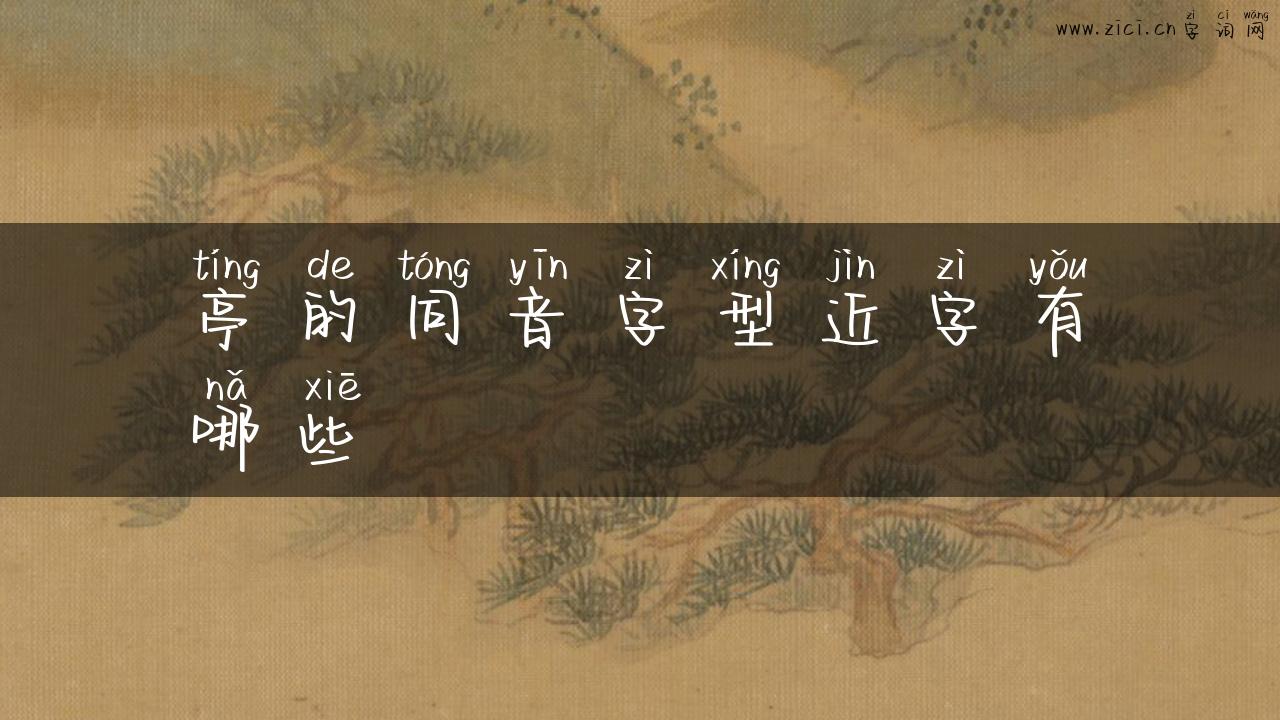 zì cí wǎng
www.zici.cn 字词网
tíng de tóng yīn zì xíng jìn zì yǒu
亭的同音字型近字有
nǎ xiē
哪些